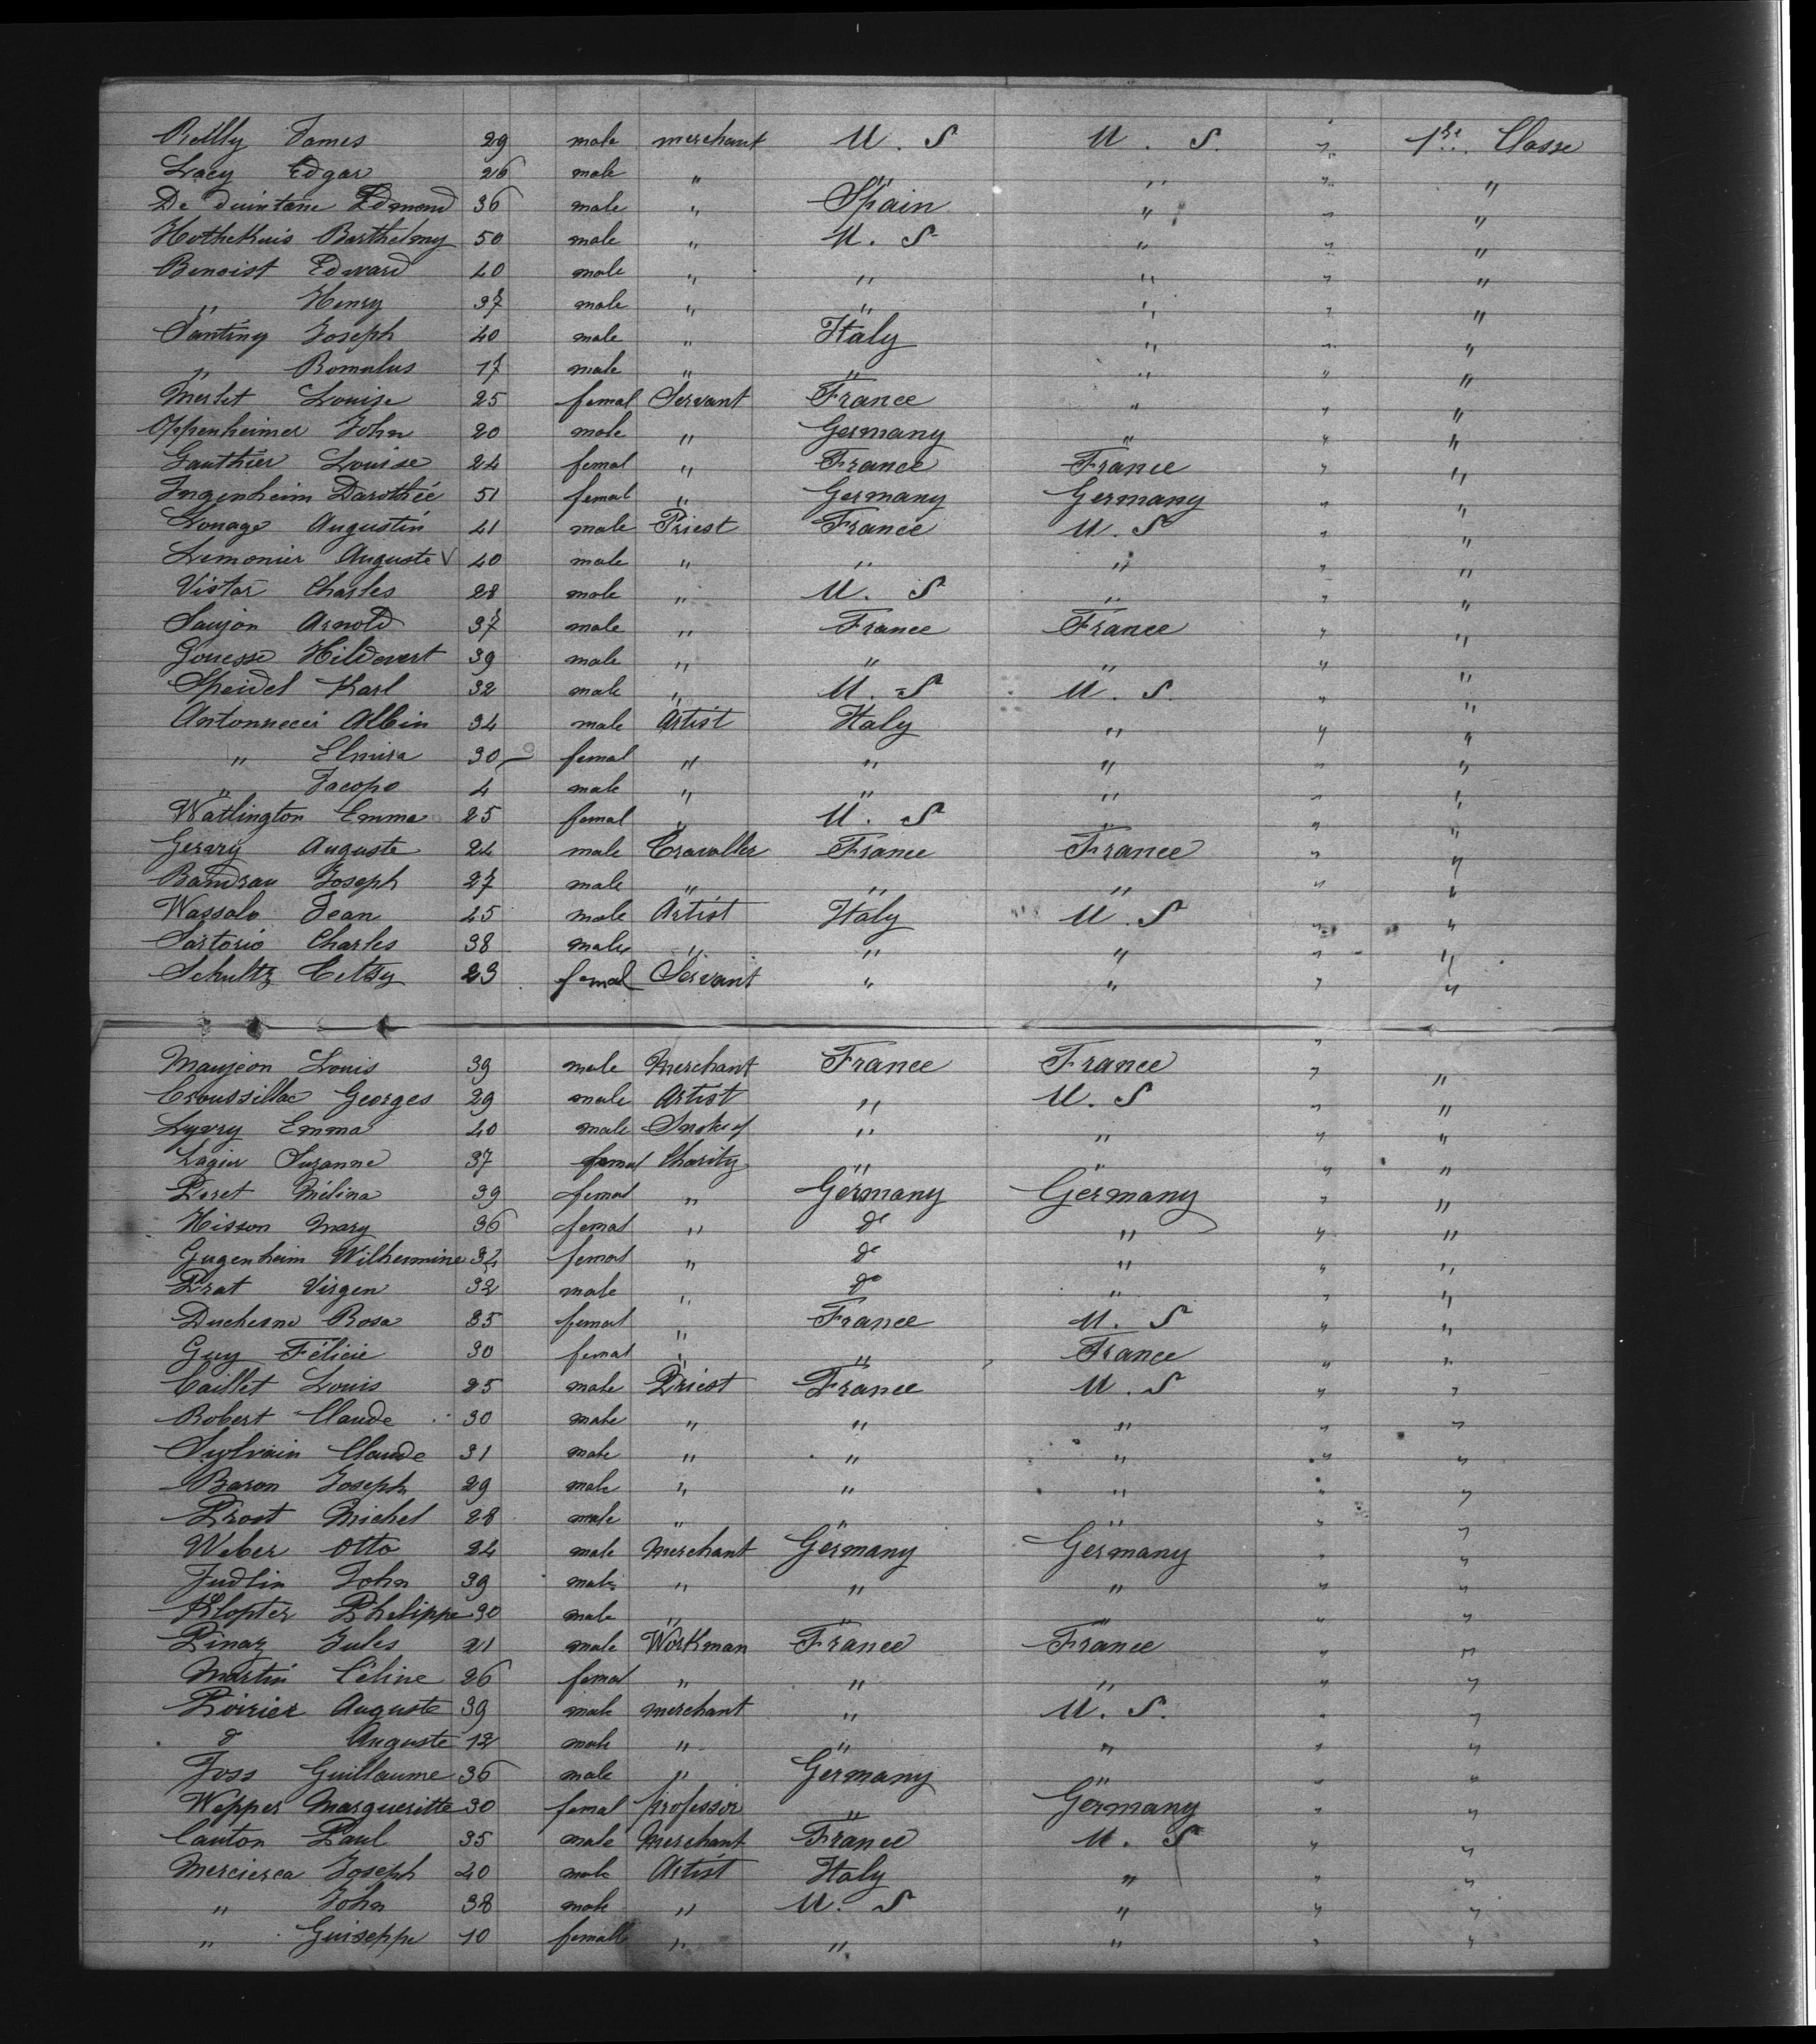 Reilly James 29 male merchant U. S U. S. " 1re Classe
Lacy Edgar 26 male " " " " "
De Quintane Edmond 36 male " Spain " " "
Barthélmy 50 male " U. S " " "
Benoist Edward 40 male " " " " "
" Henry 37 male " " " " "
Santiny Joseph 40 male " Italy " " "
" Romulus 17 male " " " " "
Merlet Louise 25 femal Servant France " " "
Oppenheimer John 20 male " Germany " " "
Gauthier Louise 24 femal " France France " "
Ingenheim Darothée 51 femal " Germany Germany " "
Lonage Augustin 41 male Priest France U. S " "
Lemonier Auguste V 40 male " " " " "
Vistar Charles 28 male " U. S " " "
Saujon Arnold 37 male " France France " "
Gouesse Hildevert 39 male " " " " "
Speidel Karl 32 male " U. S U. S " "
Antonnecci Albin 34 male Artist Italy " " "
" Elmira 30 femal " " " " "
" Jacopo 4 male " " " " "
Watlington Emma 25 femal " U. S " " "
Gerary Auguste 24 male Travaller France France " "
Bandrau Joseph 27 male " " " " "
Wassalo Jean 45 male Artist Italy U. S " "
Sartorio Charles 38 male " " " " "
Schultz Betsy 23 femal Servant " " " "
Maujeon Louis 39 male Merchant France France " "
Croussillac Georges 29 male Artist " U. S " "
Lyvry Emma 40 male " " " "
Lagier Suzanne 37 femal Charity " " " "
Peret Mélina 39 femal " Germany Germany " "
Hisson Mary 36 femal " do " " "
Gugenheim Wilhermine 34 femal " do " " "
Prat Virgen 32 male " do " " "
Duchesne Rosa 35 femal " France U. S " "
Guy Félicie 30 femal " " France " "
Caillet Louis 25 male Priest France U. S " "
Robert Claude 30 male " " " " "
Sylvain Claude 31 male " " " " "
Baron Joseph 29 male " " " " "
Prost Michel 28 male " " " " "
Weber Otto 24 male Merchant Germany Germany " "
Judlin John 39 male " " " " "
Klopter Phelippe 30 male " " " " "
Pinaz Jules 21 male Workman France France " "
Martin Céline 26 femal " " " " "
Poirier Auguste 39 male merchant " U. S. " "
d Auguste 12 male " " " " "
Joss Guillaume 36 male " Germany " " "
Wepper Margueritte 30 femal professor " Germany " "
Canton Paul 35 male Merchant France U. S " "
Mercierca Joseph 40 male Artist Italy " " "
" John 38 male " U. S " " "
" Guiseppe 10 femall " " " " "